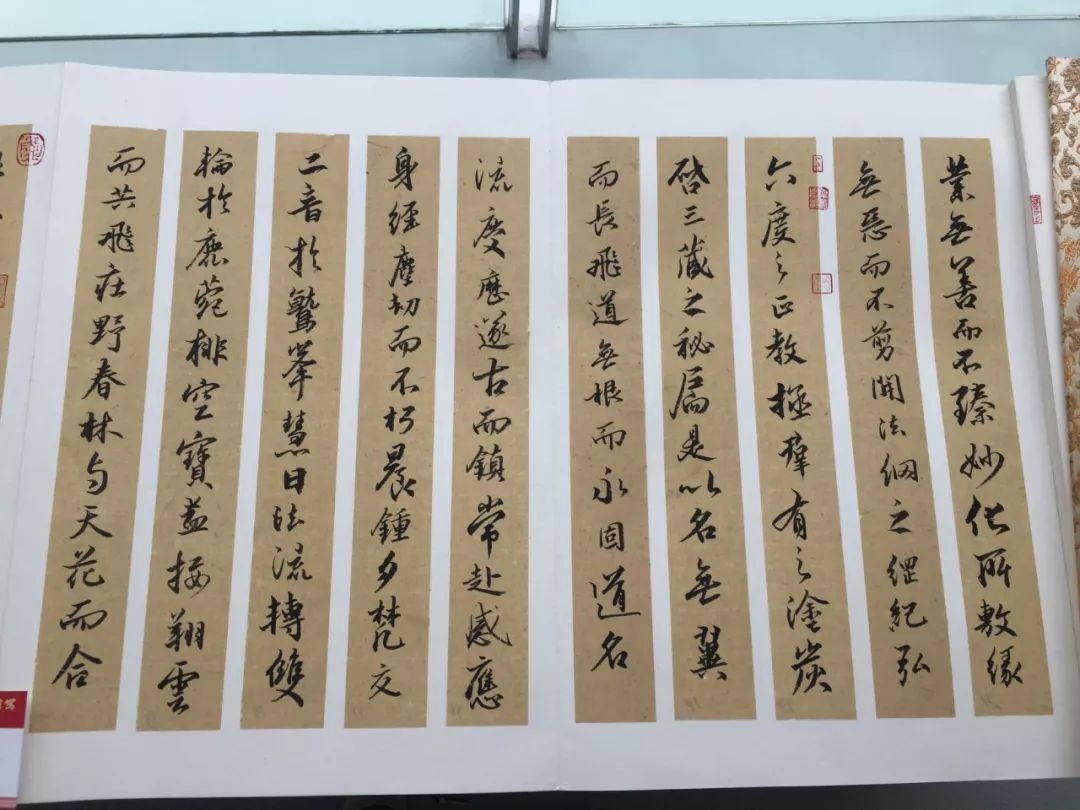 業無善而不臻妙化所敷緣
無惡而不剪開法網之綱紀弘
六度之正教拯羣有之塗炭
啓三藏之秘扃是以名無翼
而長飛道無根而永固道名
流慶歷遂古而鎮常赴感應
身經塵劫而不朽晨鍾夕梵交
二音於鷲峯慧日法流轉雙
輪於鹿菀排空寶蓋接翔雲
而共飛莊野春林与天花而合